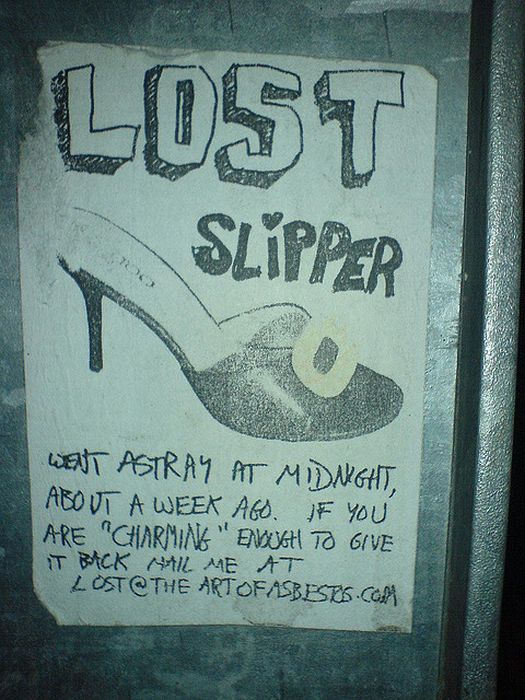 LOST
SLiPPER
WENT ASTRAY AT MIDNIGHT,
ABOUT A WEEK AGO. IF YOU
ARE "CHARMING" ENOUGH TO GIVE
IT BACK MAIL ME AT
LOST@THEARTOFASBESTOS.COM